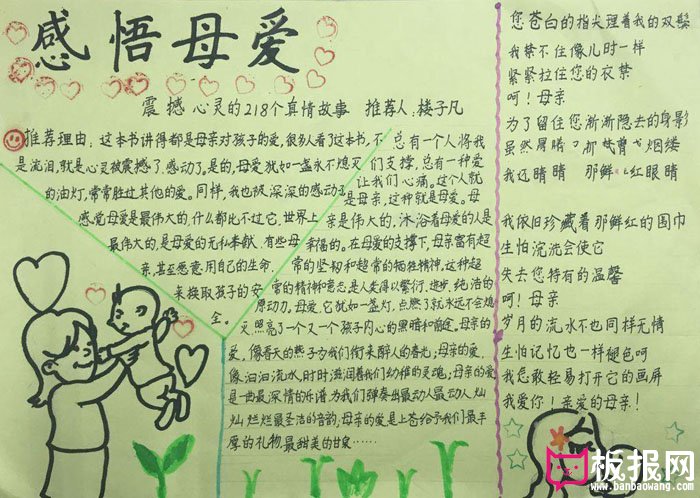 感悟母爱
震撼心灵的218个真情故事 推荐人:楼子凡
推荐理由:这本书讲得都是母亲对孩子的爱,很多人看了这本书,不
是流泪,就是心灵被震撼了.感动了。是的,母爱犹如一盏永不熄灭
的油灯,常常胜过其他的爱。同样,我也被深深的感动了
感觉母爱是最伟大的,什么都比不过它,世界上
最伟大的,是母爱的无私奉献.有些母
亲,甚至愿意用自己的生命
来换取孩子的安
全。
总有一个人将我
们支撑,总有一种爱
让我们心痛。这个人就
是母亲,这种就是母爱。母
亲是伟大的,沐浴着母爱的人是
幸福的。在母爱的支撑下,母亲富有超
常的坚韧和超常的牺牲精神,这种超
常的精神和意志是人类得以繁衍、进步、纯洁的
原动力。母爱,它犹如一盏灯,点燃了就永远不会熄
灭,照亮了一个又一个孩子内心的黑暗和前途。母亲的
爱,像春天的燕子为我们衔来醉人的春光;母亲的爱,
像汩汩流水,时时滋润着我们幼稚的灵魂;母亲的爱
是一曲最深情的乐谱,为我们弹奏出最动人最动人灿
灿烂烂最圣洁的音韵;母亲的爱是上苍给予我们最丰
厚的礼物,最甜美的甘泉……
您苍白的指尖理着我的双鬓
我禁不住像儿时一样
紧紧拉住您的衣襟
呵!母亲
为了留住您渐渐隐去的身影
虽然
我还 那鲜红
我依旧珍藏着那鲜红的围巾
生怕浣洗会使它
失去您特有的温馨
呵!母亲
岁月的流水不也同样无情
生怕记忆也一样褪色呵
我怎敢轻易打开它的画屏
我爱你!亲爱的母亲!
板报网
www.banbaowang.com